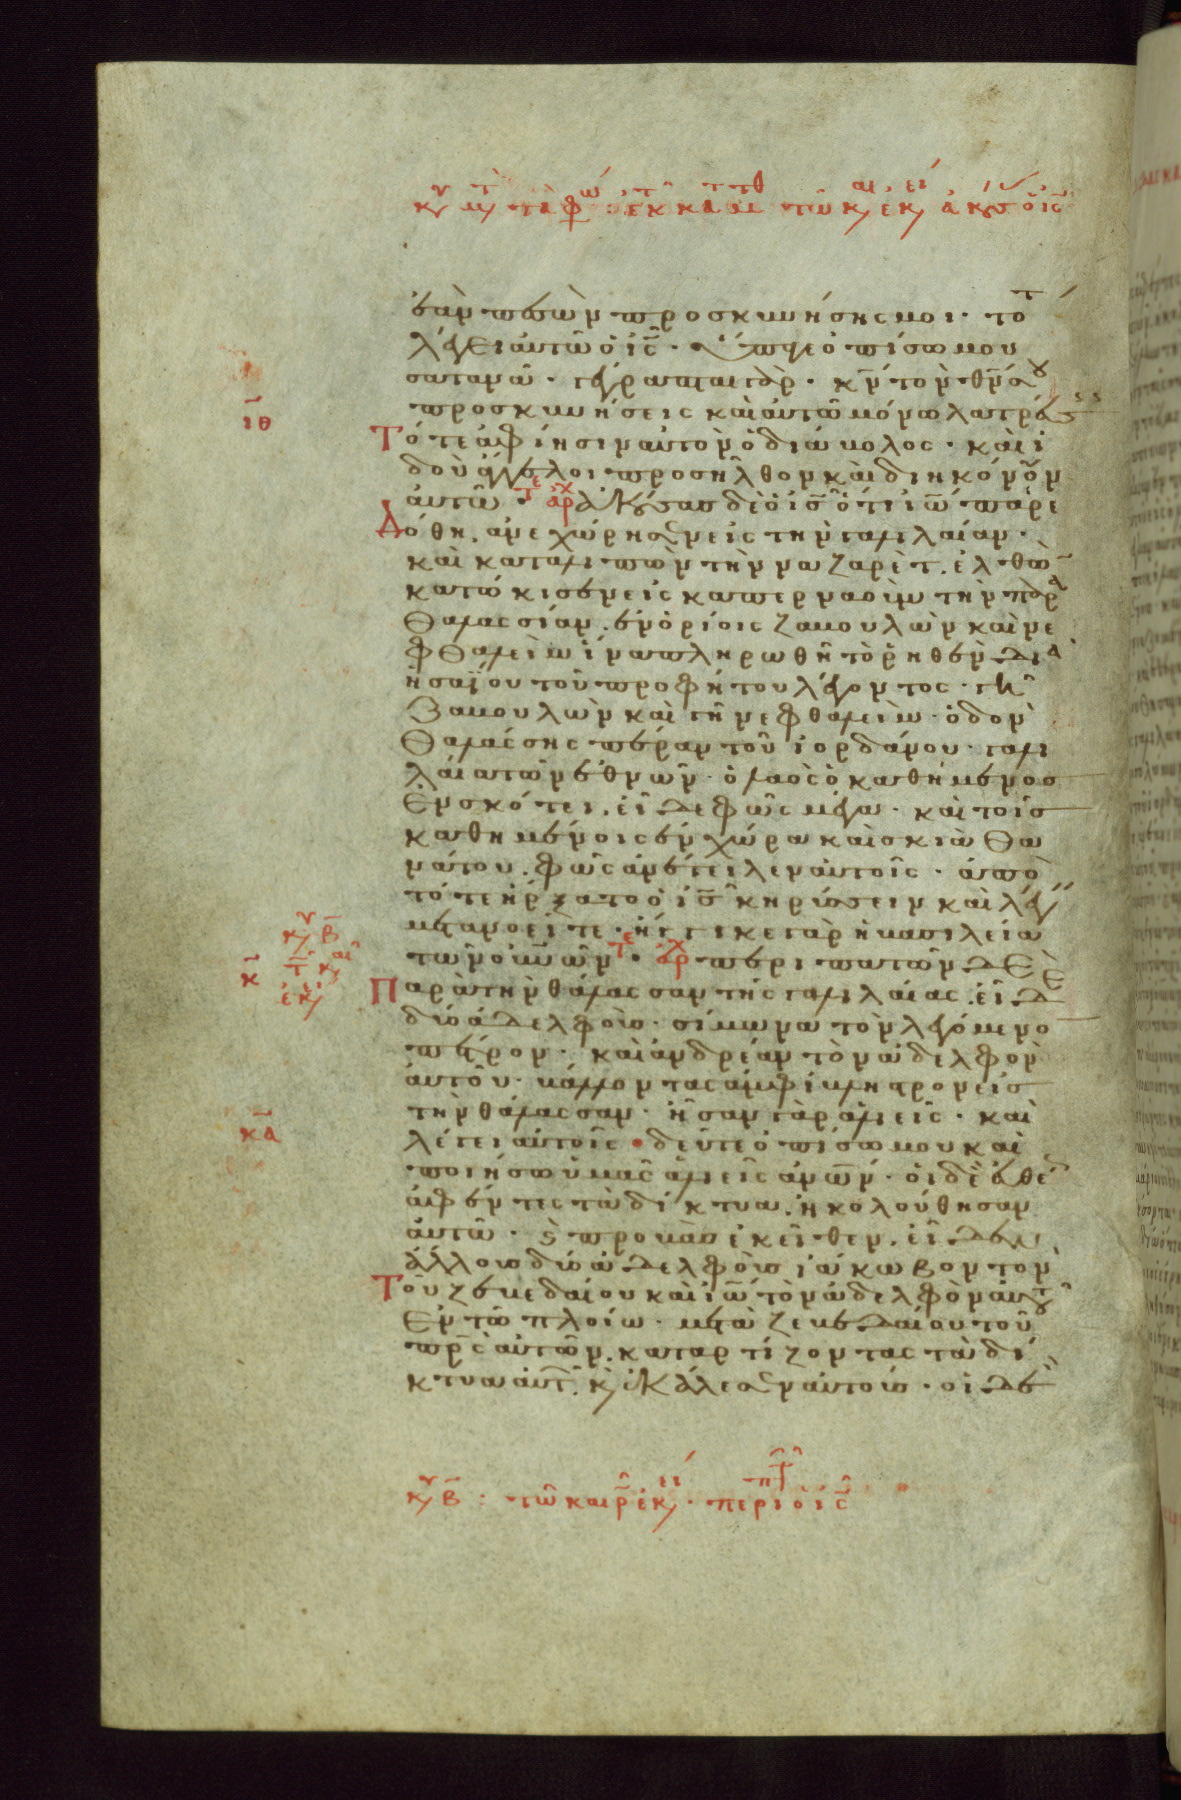 ἐὰν πεσὼν προσκυνήσης μοι· τότ
λέγει αὐτῶ ὁ ις· ὕπαγε ὀπίσω μου
σατανᾶ· γέγραπται γὰρ· κν τὸν θν σου
προσκυνήσεις καὶ αὐτῶ μόνω λατρεύσεις
Τότε ἀφίησιν αὐτὸν ὁ διάβολος· καὶ ἰ
δοὺ ἄγγελοι προσῆλθον καὶ διηκόνουν
αὐτῶ· τε αρχ ἀκούσας δὲ ὁ ις ὅτι ιω παρε
δόθη, ἀνεχώρησεν εἰς τὴν γαλιλαίαν·
καὶ καταλιπὼν τὴν ναζαρὲτ, ἐλθὼ
κατώκισεν εἰς καπερναοὺμ τὴν παρα
θαλασσίαν, ἐν ὁρίοις ζαβουλὼν καὶ νε
φθαλεὶμ ἵνα πληρωθῆ τὸ ῥηθὲν δια
ἡσαΐου τοῦ προφήτου λέγοντος· γῆ
ζαβουλὼν καὶ γῆ νεφθαλεὶμ· ὁδὸν
θαλάσσης πέραν τοῦ ἰορδάνου· γαλι
λαία τῶν ἐθνῶν· ὁ λαὸς ὁ καθήμενος
ἐν σκότει, εἶδε φῶς μέγα· καὶ τοῖς
καθημένοις ἐν χώρα καὶ σκιᾶ θα
νάτου, φῶς ἀνέτειλεν αὐτοῖς· ἀπὸ
τότε ἤρξατο ὁ ις κηρύσσειν καὶ λέγειν
μετανοεῖτε· ἤγγικε γὰρ ἡ βασιλεία
τῶν οὐνῶν τε· αρχ περιπατῶν δὲ
Παρὰ τὴν θάλασσαν τῆς γαλιλαίας, εἶδε
δύο ἀδελφοὺς· σίμωνα τὸν λεγόμενο
πέτρον· καὶ ἀνδρέαν τὸν ἀδελφὸν
αὐτοῦ· βάλλοντας ἀμφίβληστρον εἰς
τὴν θάλασσαν· ἦσαν γὰρ ἁλιεῖς· καὶ
λέγει αὐτοῖς· δεῦτε ὀπίσω μου καὶ
ποιήσω ὑμᾶς ἁλιεῖς ανων· οἱ δὲ εὐθέ
ἀφέντες τὰ δίκτυα, ἠκολούθησαν
αὐτῶ· καὶ προβὰς ἐκεῖθεν, εἶδεν
ἄλλους δύο ἀδελφοὺς ἰάκωβον τὸν
Τοῦ ζεβεδαίου καὶ ιω τὸν ἀδελφὸν αὐτοῦ
ἐν τῶ πλοίω· μετὰ ζεβεδαίου τοῦ
πρς αὐτῶν, καταρτίζοντας τὰ δί
κτυα αὐτῶν, κ ἐκάλεσεν αὐτούς· οἱ δὲ
ιθ
κυ β
τ και
εκει
κ
κα
κυ β : τῶ καιρ εκει· περιπτ ὁ ις